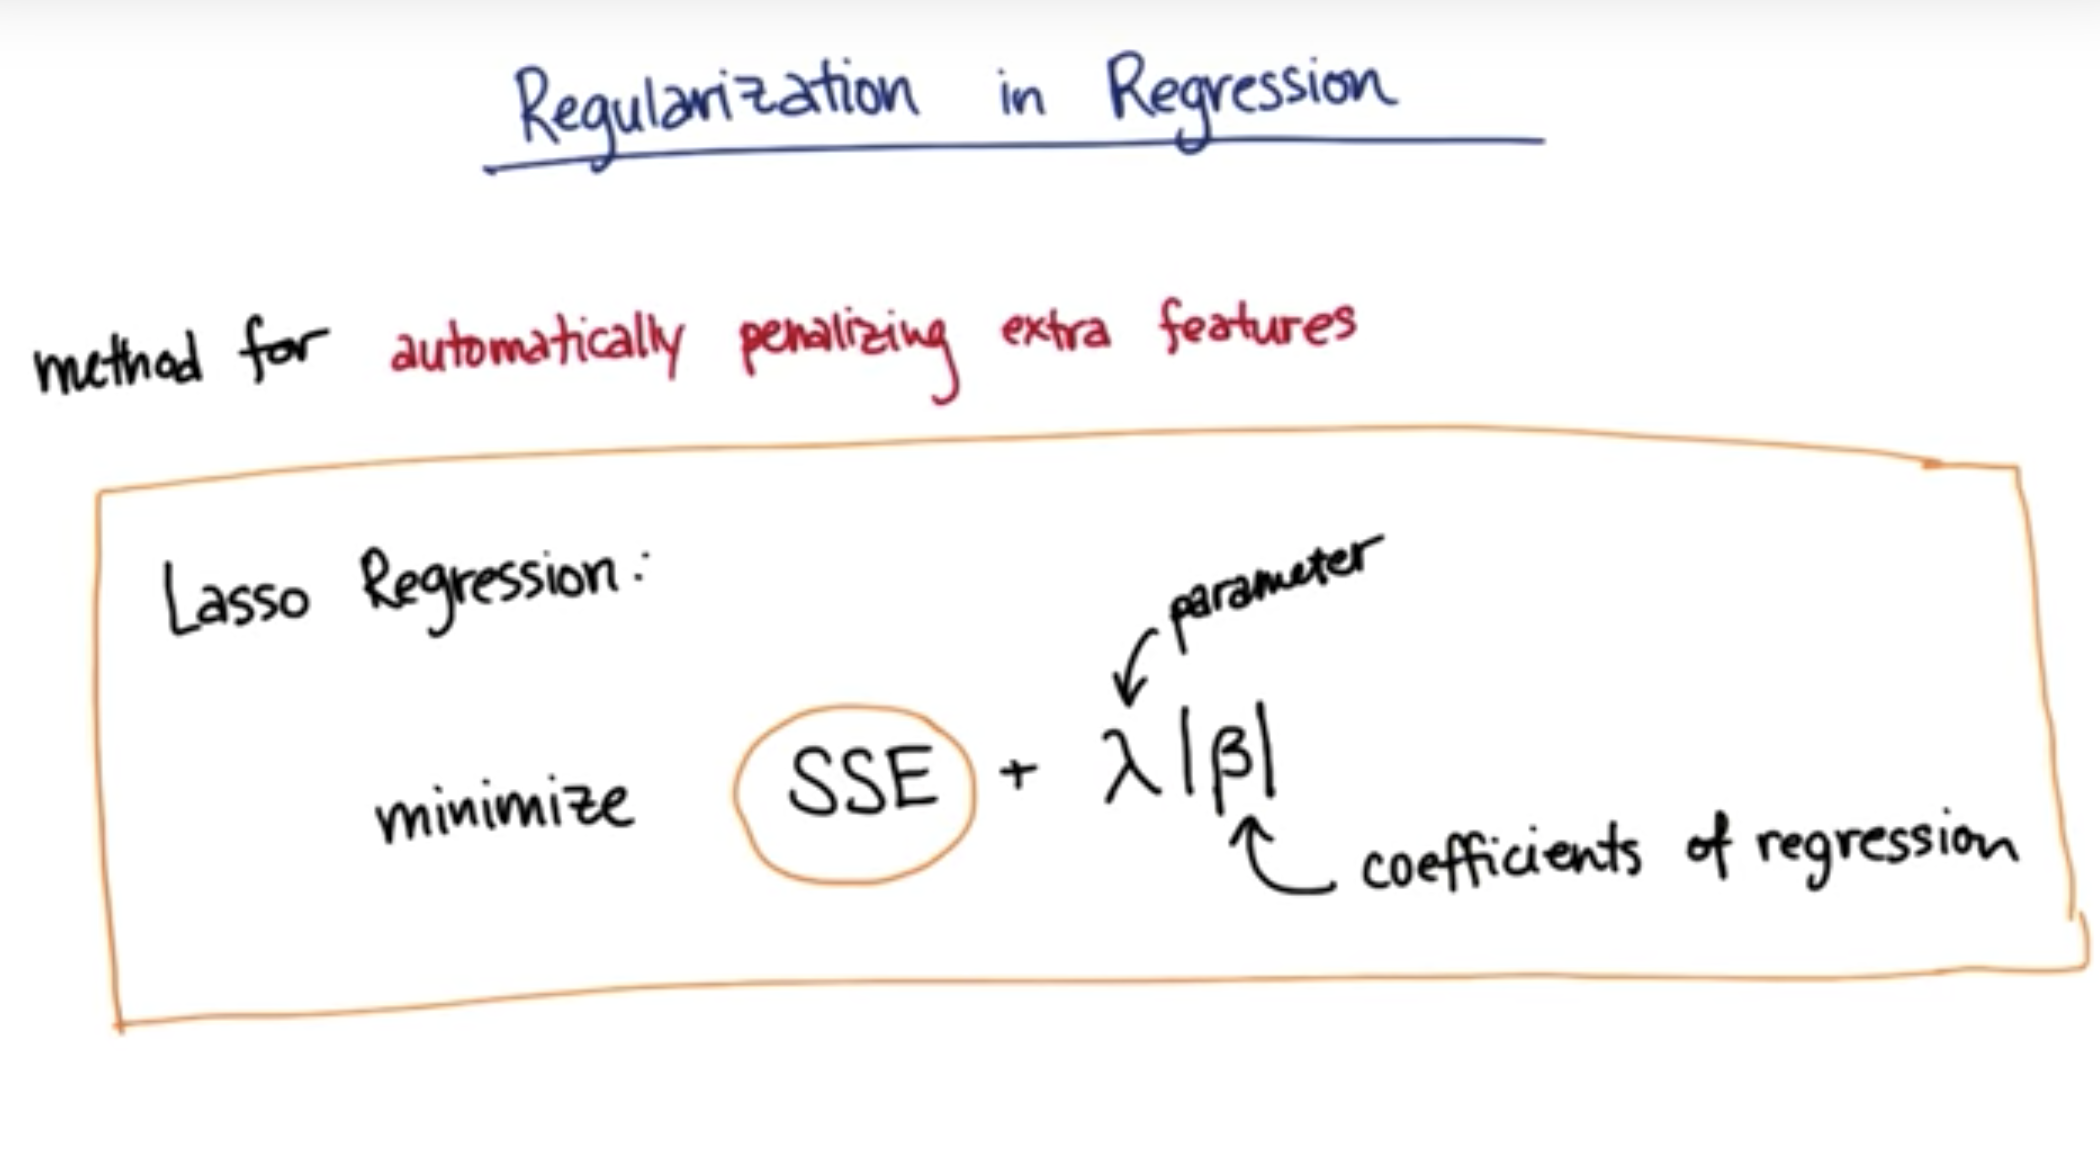 Regularization in Regression
method for automatically penalizing extra features
Lasso Regression:
parameter
minimize SSE + λ|β|
coefficients of regression